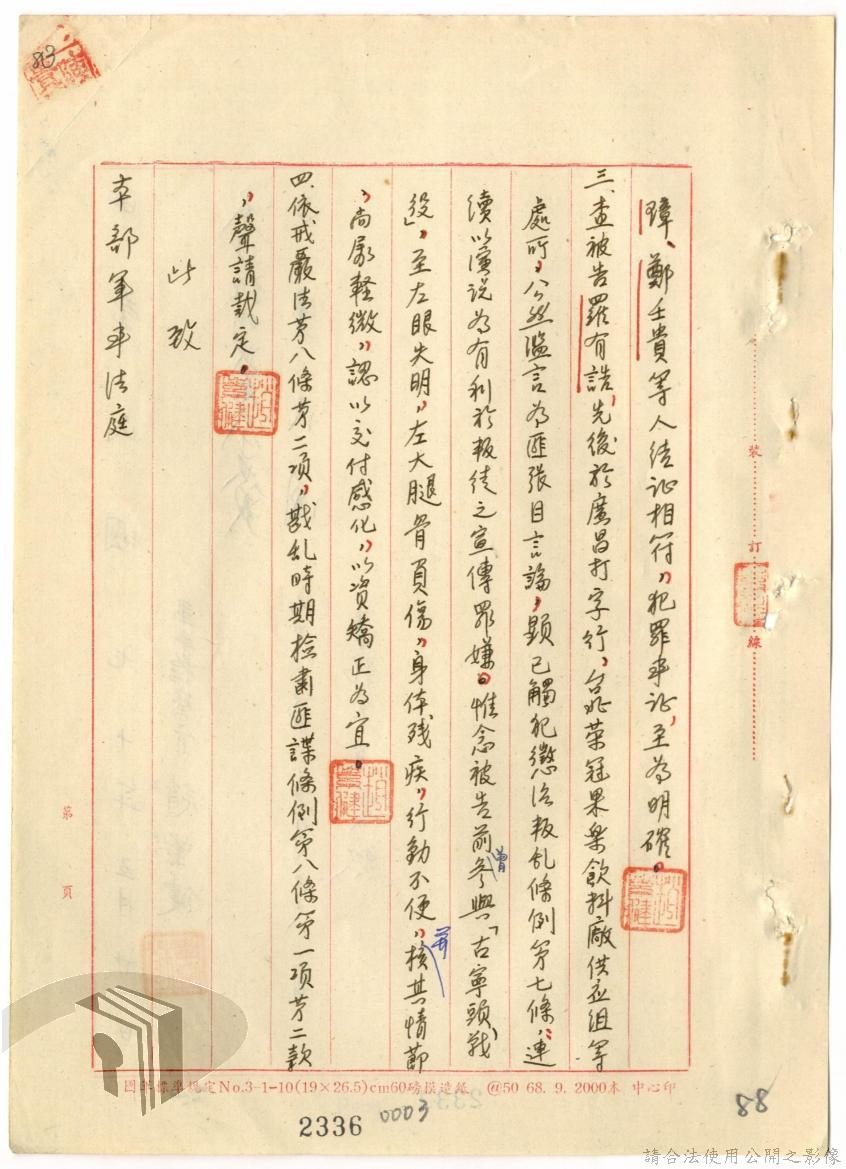 璋、鄭壬貴等人結証相符，犯罪事証，至為明確。
三、查被告羅有誥，先後於廣昌打字行，台北榮冠果樂飲料廠供应组等
處所，公然滥言為匪張目言論，顯已觸犯懲治叛乱條例第七條，連
續以演说為有利於叛徒之宣傳罪嫌。惟念被告前曾參與「古寧頭战
役」，至左眼失明，左大腿骨負傷，身体残疾，行動不便，核其情節
，尚屬軽微，認以交付感化，以资矯正為宜。
四、依戒嚴法第八條第二项，戡乱時期检肅匪諜條例第八條第一项第二款
，聲請裁定。
此致
本部軍事法庭
裝
訂
線
第 頁
國軍標準規定No.3-1-10(19×26.5)cm60磅模造紙 @50 68. 9. 2000本 中心印
2336
0003
88
813
請合法使用公開之影像